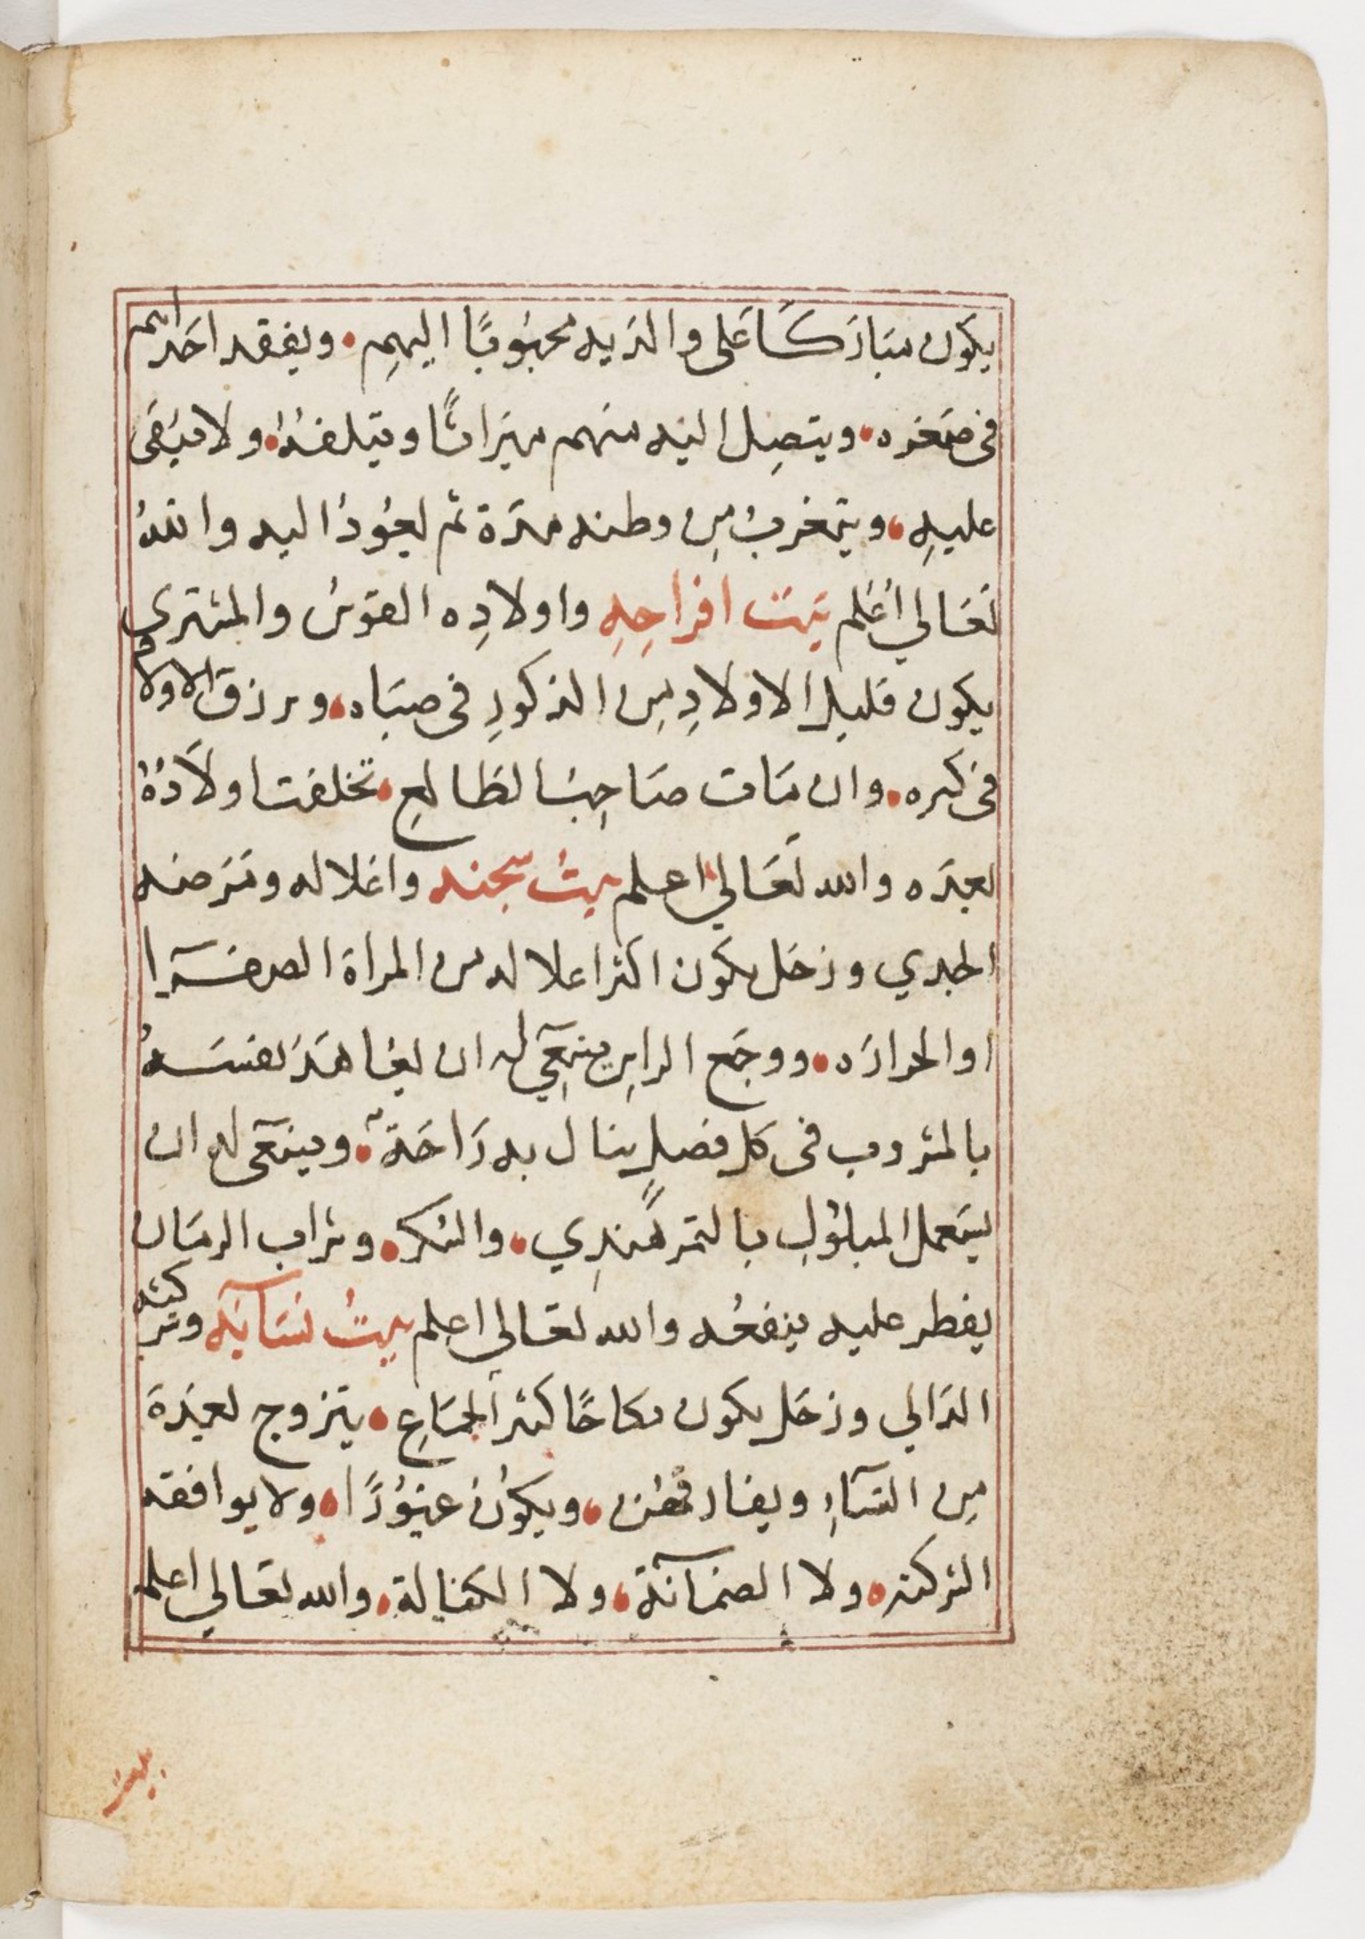 يكون مبَاركًا عَلى والدَيه محبُوبًا اليهِم • ويفقد احَدَاهم
فى صَغره • ويتصِل اليه منهم ميَراثًا ويتلفهُ • ولا يبَقى
عليهِ • ويتغربُ مِن وطنه مدَة ثم يعُودُ اليه واللهُ
تعَالي اُعْلم بَيت افراحِهِ واولادِه القوسُ والمشتري
يكون قليل الاولادِ مِن الذكورِ فى صبَاه • ويرزق الاولاد
فى كبره • وان مَات صَاحِبُ الطَالعِ • تخلفت اولَادهُ
بعدَه والله تعَالي اعلم بيتُ سجنه واعلاله ومَرَضه
الجدي وزحَل يكون اكثر اعلاله من المراة الصفرَا
او الحرارَه • ووجَع الراسِ ينبغِي له ان يعَاهَدَ نفسَهُ
بالمشروب فى كل فصلٍ ينال به رَاحَة • وينبغى له ان
يستعمل المبلوُلِ بالتمر هندِي • والسُكر • وشراب الرمَان
يفطر عليه ينفعُه والله تعَالي اعلم بيتُ نسَآئِه وشركته
الدَالي وزحَل يكون نكاحًا كثير الجمَاعِ • يتزوج بعدَة
مِن النسَآءِ ويفارقهُن • ويكوُن غيُورًا • ولا يوافقه
الشركته • ولا الضمَانَة • ولا الكفالة • والله تعَالي اعلم
بيت